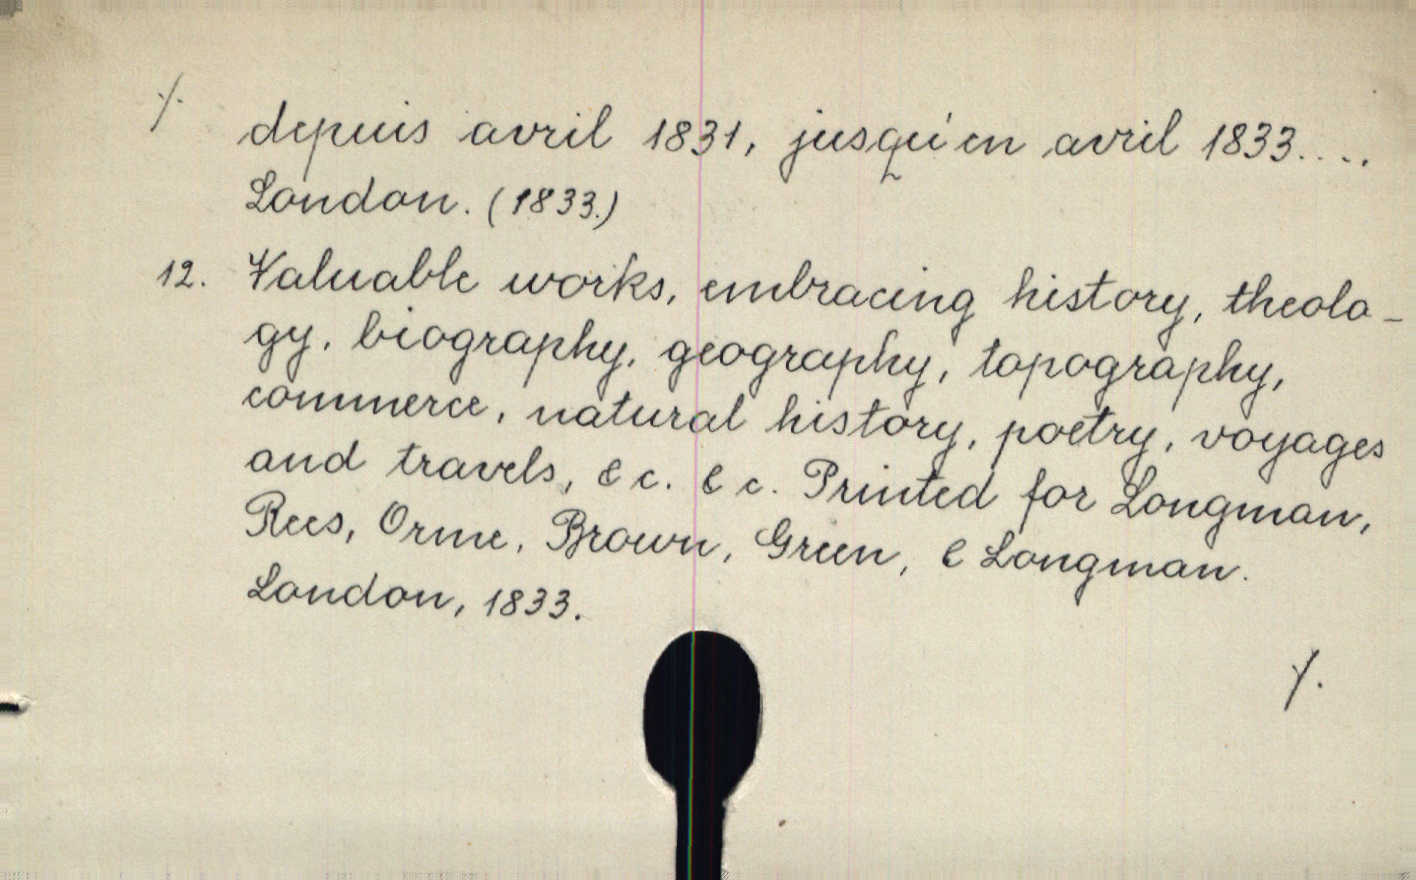 ./.
depuis avril 1831, jusqu'en avril 1833....
London. (1833.)
12. Valuable works, embracing history, theolo-
gy, biography, geography, topography,
commerce, natural history, poetry, voyages
and travels, &c. &c. Printed for Longman,
Rees, Orme, Brown, Green, & Longman.
London, 1833.
./.